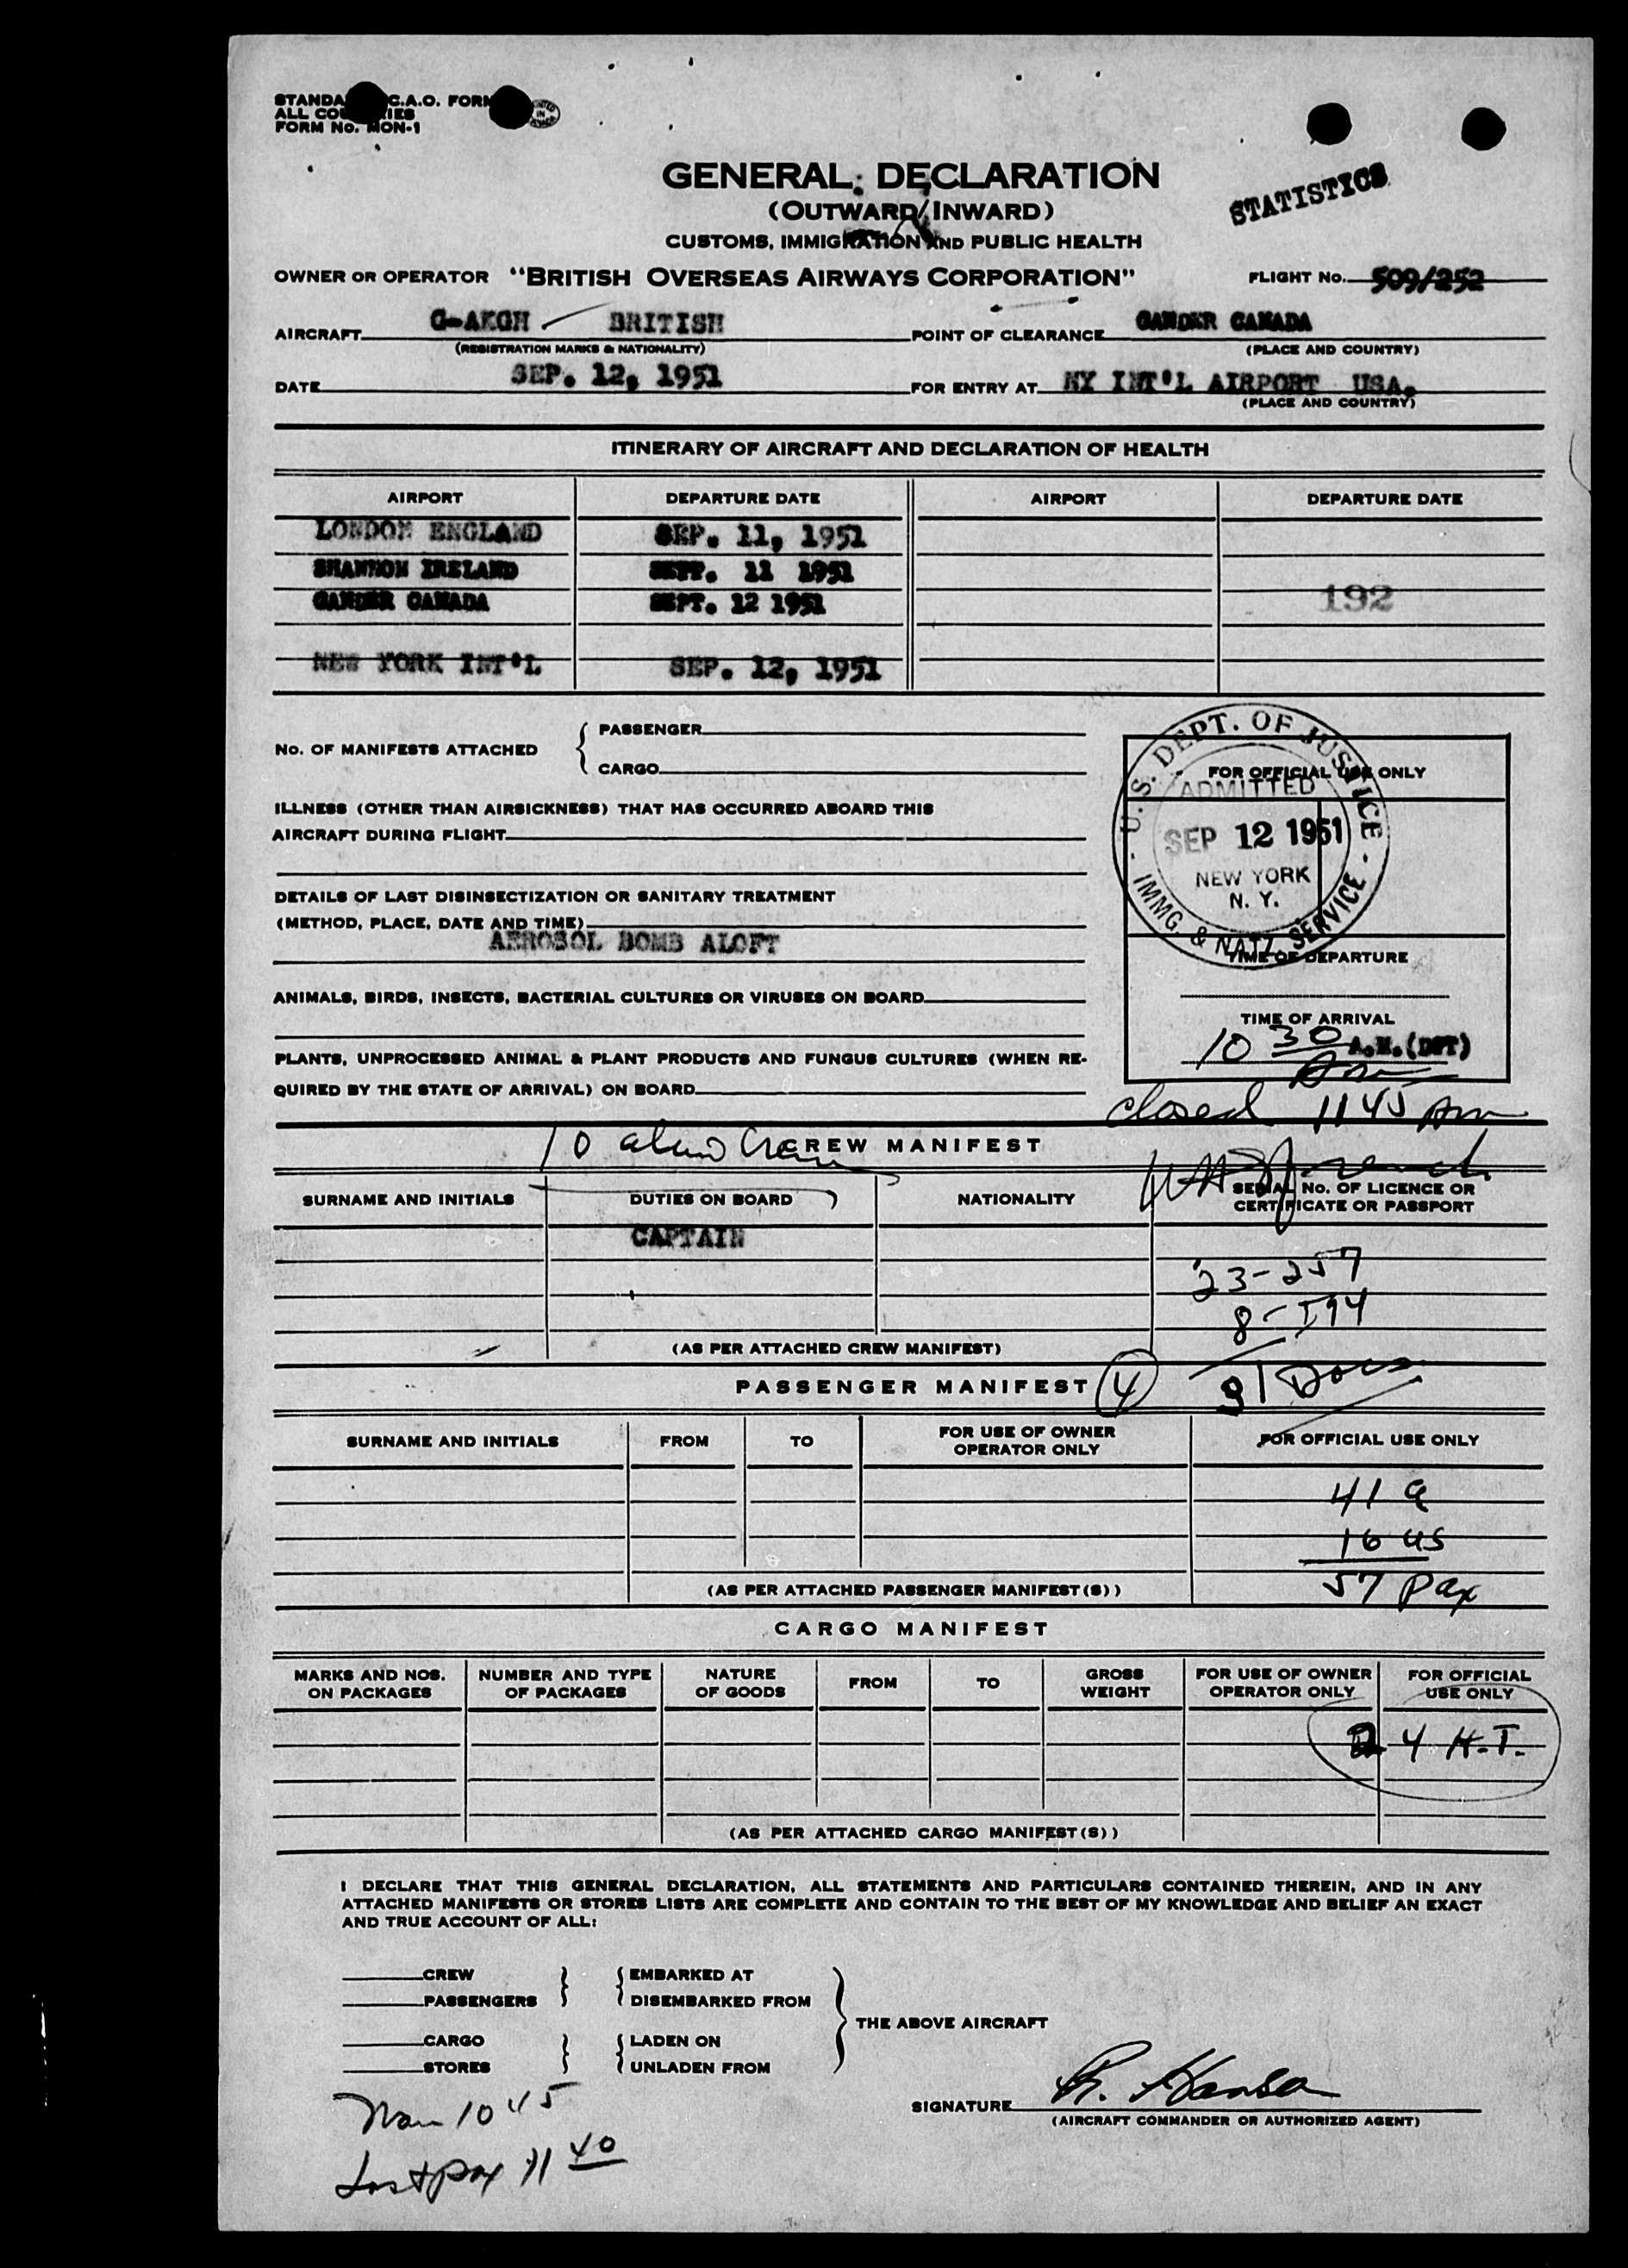 STANDA C.A.O. FORM
ALL CO IES
FORM No. MON-1
PRINTED IN
GENERAL DECLARATION
STATISTICS
(OUTWARD/INWARD)
CUSTOMS, IMMIGRATION AND PUBLIC HEALTH
OWNER OR OPERATOR "BRITISH OVERSEAS AIRWAYS CORPORATION" FLIGHT No. 509/252
AIRCRAFT G-AKGH BRITISH POINT OF CLEARANCE GANDER CANADA
(REGISTRATION MARKS & NATIONALITY) (PLACE AND COUNTRY)
DATE SEP. 12, 1951 FOR ENTRY AT NY INT'L AIRPORT USA.
(PLACE AND COUNTRY)
ITINERARY OF AIRCRAFT AND DECLARATION OF HEALTH
AIRPORT DEPARTURE DATE AIRPORT DEPARTURE DATE
LONDON ENGLAND SEP. 11, 1951
SHANNON IRELAND SEPT. 11 1951
GANDER CANADA SEPT. 12 1951 192
NEW YORK INT'L SEP. 12, 1951
No. OF MANIFESTS ATTACHED
PASSENGER
CARGO
U.S. DEPT. OF JUSTICE
FOR OFFICIAL USE ONLY
ADMITTED
SEP 12 1951
NEW YORK
N. Y.
IMMG. & NATZ. SERVICE
ILLNESS (OTHER THAN AIRSICKNESS) THAT HAS OCCURRED ABOARD THIS
AIRCRAFT DURING FLIGHT
DETAILS OF LAST DISINSECTIZATION OR SANITARY TREATMENT
(METHOD, PLACE, DATE AND TIME)
AEROSOL BOMB ALOFT
TIME OF DEPARTURE
ANIMALS, BIRDS, INSECTS, BACTERIAL CULTURES OR VIRUSES ON BOARD
TIME OF ARRIVAL
10 30 A.M.(DST)
PLANTS, UNPROCESSED ANIMAL & PLANT PRODUCTS AND FUNGUS CULTURES (WHEN RE-
QUIRED BY THE STATE OF ARRIVAL) ON BOARD
closed 11 45 Am
10 alien Crew
CREW MANIFEST
SURNAME AND INITIALS DUTIES ON BOARD NATIONALITY SERIAL No. OF LICENCE OR
CERTIFICATE OR PASSPORT
CAPTAIN
23-257
8-I94
(AS PER ATTACHED CREW MANIFEST)
PASSENGER MANIFEST 4 31 Docs
SURNAME AND INITIALS FROM TO FOR USE OF OWNER
OPERATOR ONLY FOR OFFICIAL USE ONLY
41 a
16 us
(AS PER ATTACHED PASSENGER MANIFEST(S)) 57 pax
CARGO MANIFEST
MARKS AND NOS.
ON PACKAGES NUMBER AND TYPE
OF PACKAGES NATURE
OF GOODS FROM TO GROSS
WEIGHT FOR USE OF OWNER
OPERATOR ONLY FOR OFFICIAL
USE ONLY
4 H.T.
(AS PER ATTACHED CARGO MANIFEST(S))
I DECLARE THAT THIS GENERAL DECLARATION, ALL STATEMENTS AND PARTICULARS CONTAINED THEREIN, AND IN ANY
ATTACHED MANIFESTS OR STORES LISTS ARE COMPLETE AND CONTAIN TO THE BEST OF MY KNOWLEDGE AND BELIEF AN EXACT
AND TRUE ACCOUNT OF ALL:
CREW EMBARKED AT
PASSENGERS DISEMBARKED FROM
THE ABOVE AIRCRAFT
CARGO LADEN ON
STORES UNLADEN FROM
SIGNATURE
(AIRCRAFT COMMANDER OR AUTHORIZED AGENT)
10 45
Last pax 11 40